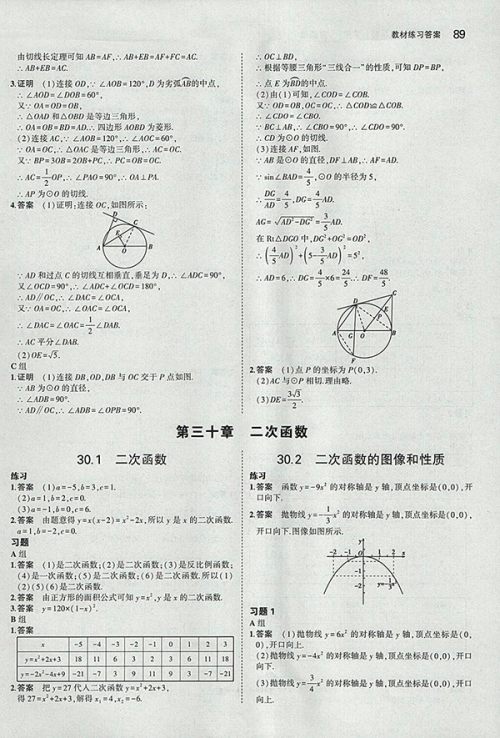 教材练习答案 89
由切线长定理可知 AB=AF,∴AB+EB=AF+FC=AC.
∴AB+EB=AC.
3.证明 (1)连接 OD,∵∠AOB=120°,D 为劣弧AB的中点,
∴∠AOD=∠DOB=60°,
又∵OA=OD=OB,
∴△OAD 和△OBD 是等边三角形,
∴OA=OB=BD=AD.∴四边形 AOBD 为菱形.
(2)连接 AC,∵∠AOB=120°,∴∠AOC=60°,
∵OA=OC,∴△OAC 是等边三角形,∴AC=OC.
又∵BP=3OB=2OB+PC,∴PC=OB=OC.
∴AC=1/2OP,∴∠PAO=90°,∴OA⊥PA.
∴AP 为⊙O 的切线.
4.答案 (1)证明:连接 OC,如图所示:
D
C
E
A O B
∵AD 和过点 C 的切线互相垂直,垂足为 D,∴∠ADC=90°,
又∠OCD=90°,∴∠ADC+∠OCD=180°,
∴AD∥OC,∴∠DAC=∠OCA,
又∵OA=OC,∴∠OAC=∠OCA,
∴∠DAC=∠OAC=1/2∠DAB.
∴AC 平分∠DAB.
(2)OE=√5.
C 组
1.证明 (1)连接 DB,OD,DB 与 OC 交于 P 点如图.
∵AB 为⊙O 的直径,
∴∠ADB=90°.
∵AD∥OC,∴∠ADB=∠OPB=90°.
∴OC⊥BD,
∴根据等腰三角形“三线合一”的性质,可知 DP=BP,
∴点 E 为BD的中点.
(2)由(1)可知,∠COD=∠COB.
又∵OD=OB,OC=OC,∴△COD≌△COB.
∴∠CDO=∠CBO.
∵BC⊥AB,∴∠CBO=90°,∴∠CDO=90°.
∴CD 为⊙O 的切线.
(3)连接 AF,如图.
∵AB 是⊙O 的直径,DF⊥AB,∴AF=AD.
∵sin∠BAD=4/5,⊙O 的半径为 5,
∴DG/AD=4/5,DG=4/5AD.
AG=√(AD²-DG²)=3/5AD.
在 Rt△DGO 中,DG²+OG²=OD²,
∴(4/5AD)²+(5-3/5AD)²=5²,
∴AD=6,∴DG=4/5×6=24/5,∴DF=48/5.
C
D E
P
A G O B
F
2.答案 (1)点 P 的坐标为 P(0,3).
(2)AC 与⊙P 相切.理由略.
(3)DE=3√3/2.
第三十章 二次函数
30.1 二次函数
练习
1.答案 (1)a=-5,b=3,c=1.
(2)a=1,b=2,c=0.
(3)a=-1,b=0,c=6.
2.答案 由题意得 y=x(x-2)=x²-2x,所以 y 是 x 的二次函数.
a=1,b=-2,c=0.
习题
A 组
1.答案 (1)是二次函数;(2)是二次函数;(3)是反比例函数;
(4)是一次函数;(5)是二次函数;(6)是二次函数.所以(1)
(2)(5)(6)是二次函数.
2.答案 由正方形的面积公式可知 y=x²,y 是 x 的二次函数.
3.答案 y=120×(1-x)².
B 组
1.答案
x -5 -4 -3 -2 -1 0 1 2 3
y=x²+2x+3 18 11 6 3 2 3 6 11 18
y=-2x²-4x+9 -21 -7 3 9 11 9 3 -7 -21
2.答案 把 y=27 代入二次函数 y=x²+2x+3,
得 27=x²+2x+3,解得 x₁=4,x₂=-6.
30.2 二次函数的图像和性质
练习
1.答案 函数 y=-9x² 的对称轴是 y 轴,顶点坐标是(0,0),开
口向下.
2.答案 抛物线 y=-1/3x² 的对称轴是 y 轴,顶点坐标是(0,0),
开口向下.图像如图所示.
y
-2 -1 O 1 2 x
-1
-2
y=-1/3x²
习题 1
A 组
1.答案 (1)抛物线 y=6x² 的对称轴是 y 轴,顶点坐标是(0,
0),开口向上.
(2)抛物线 y=-4x² 的对称轴是 y 轴,顶点坐标是(0,0),开口
向下.
(3)抛物线 y=3/4x² 的对称轴是 y 轴,顶点坐标是(0,0),开口
向上.